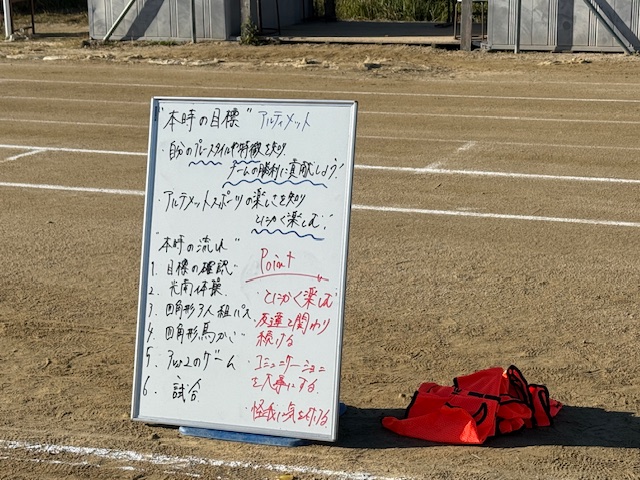 "本時の目標" アルティメット
・自分のプレースタイルや特徴を知り
チームの勝利に貢献しよう!
・アルティメットスポーツの楽しさを知り
とにかく楽しむ!
"本時の流れ"
1. 目標の確認
2. 光南体操
3. 四角形3人組パス
4. 四角形鳥かご
5. 3vs2のゲーム
6. 試合
Point
・とにかく楽しむ
・友達と関わり
続ける
・コミュニケーション
を大事にする
・怪我に気を付ける